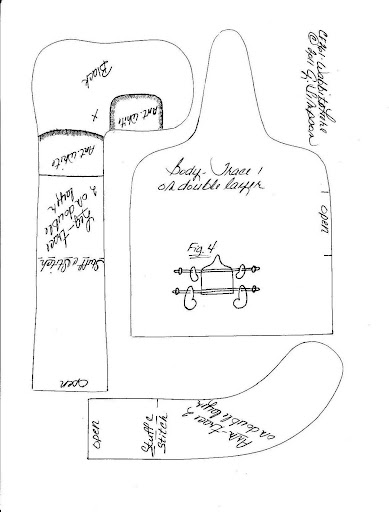 Black
x
Ant. White
Ant. White
Leg-trace
2 on double
layer
Stuff & Stitch
open
Body - Trace 1
on double layer
open
Fig. 4
Arm-trace 2
on double layer
Stuff &
Stitch
open